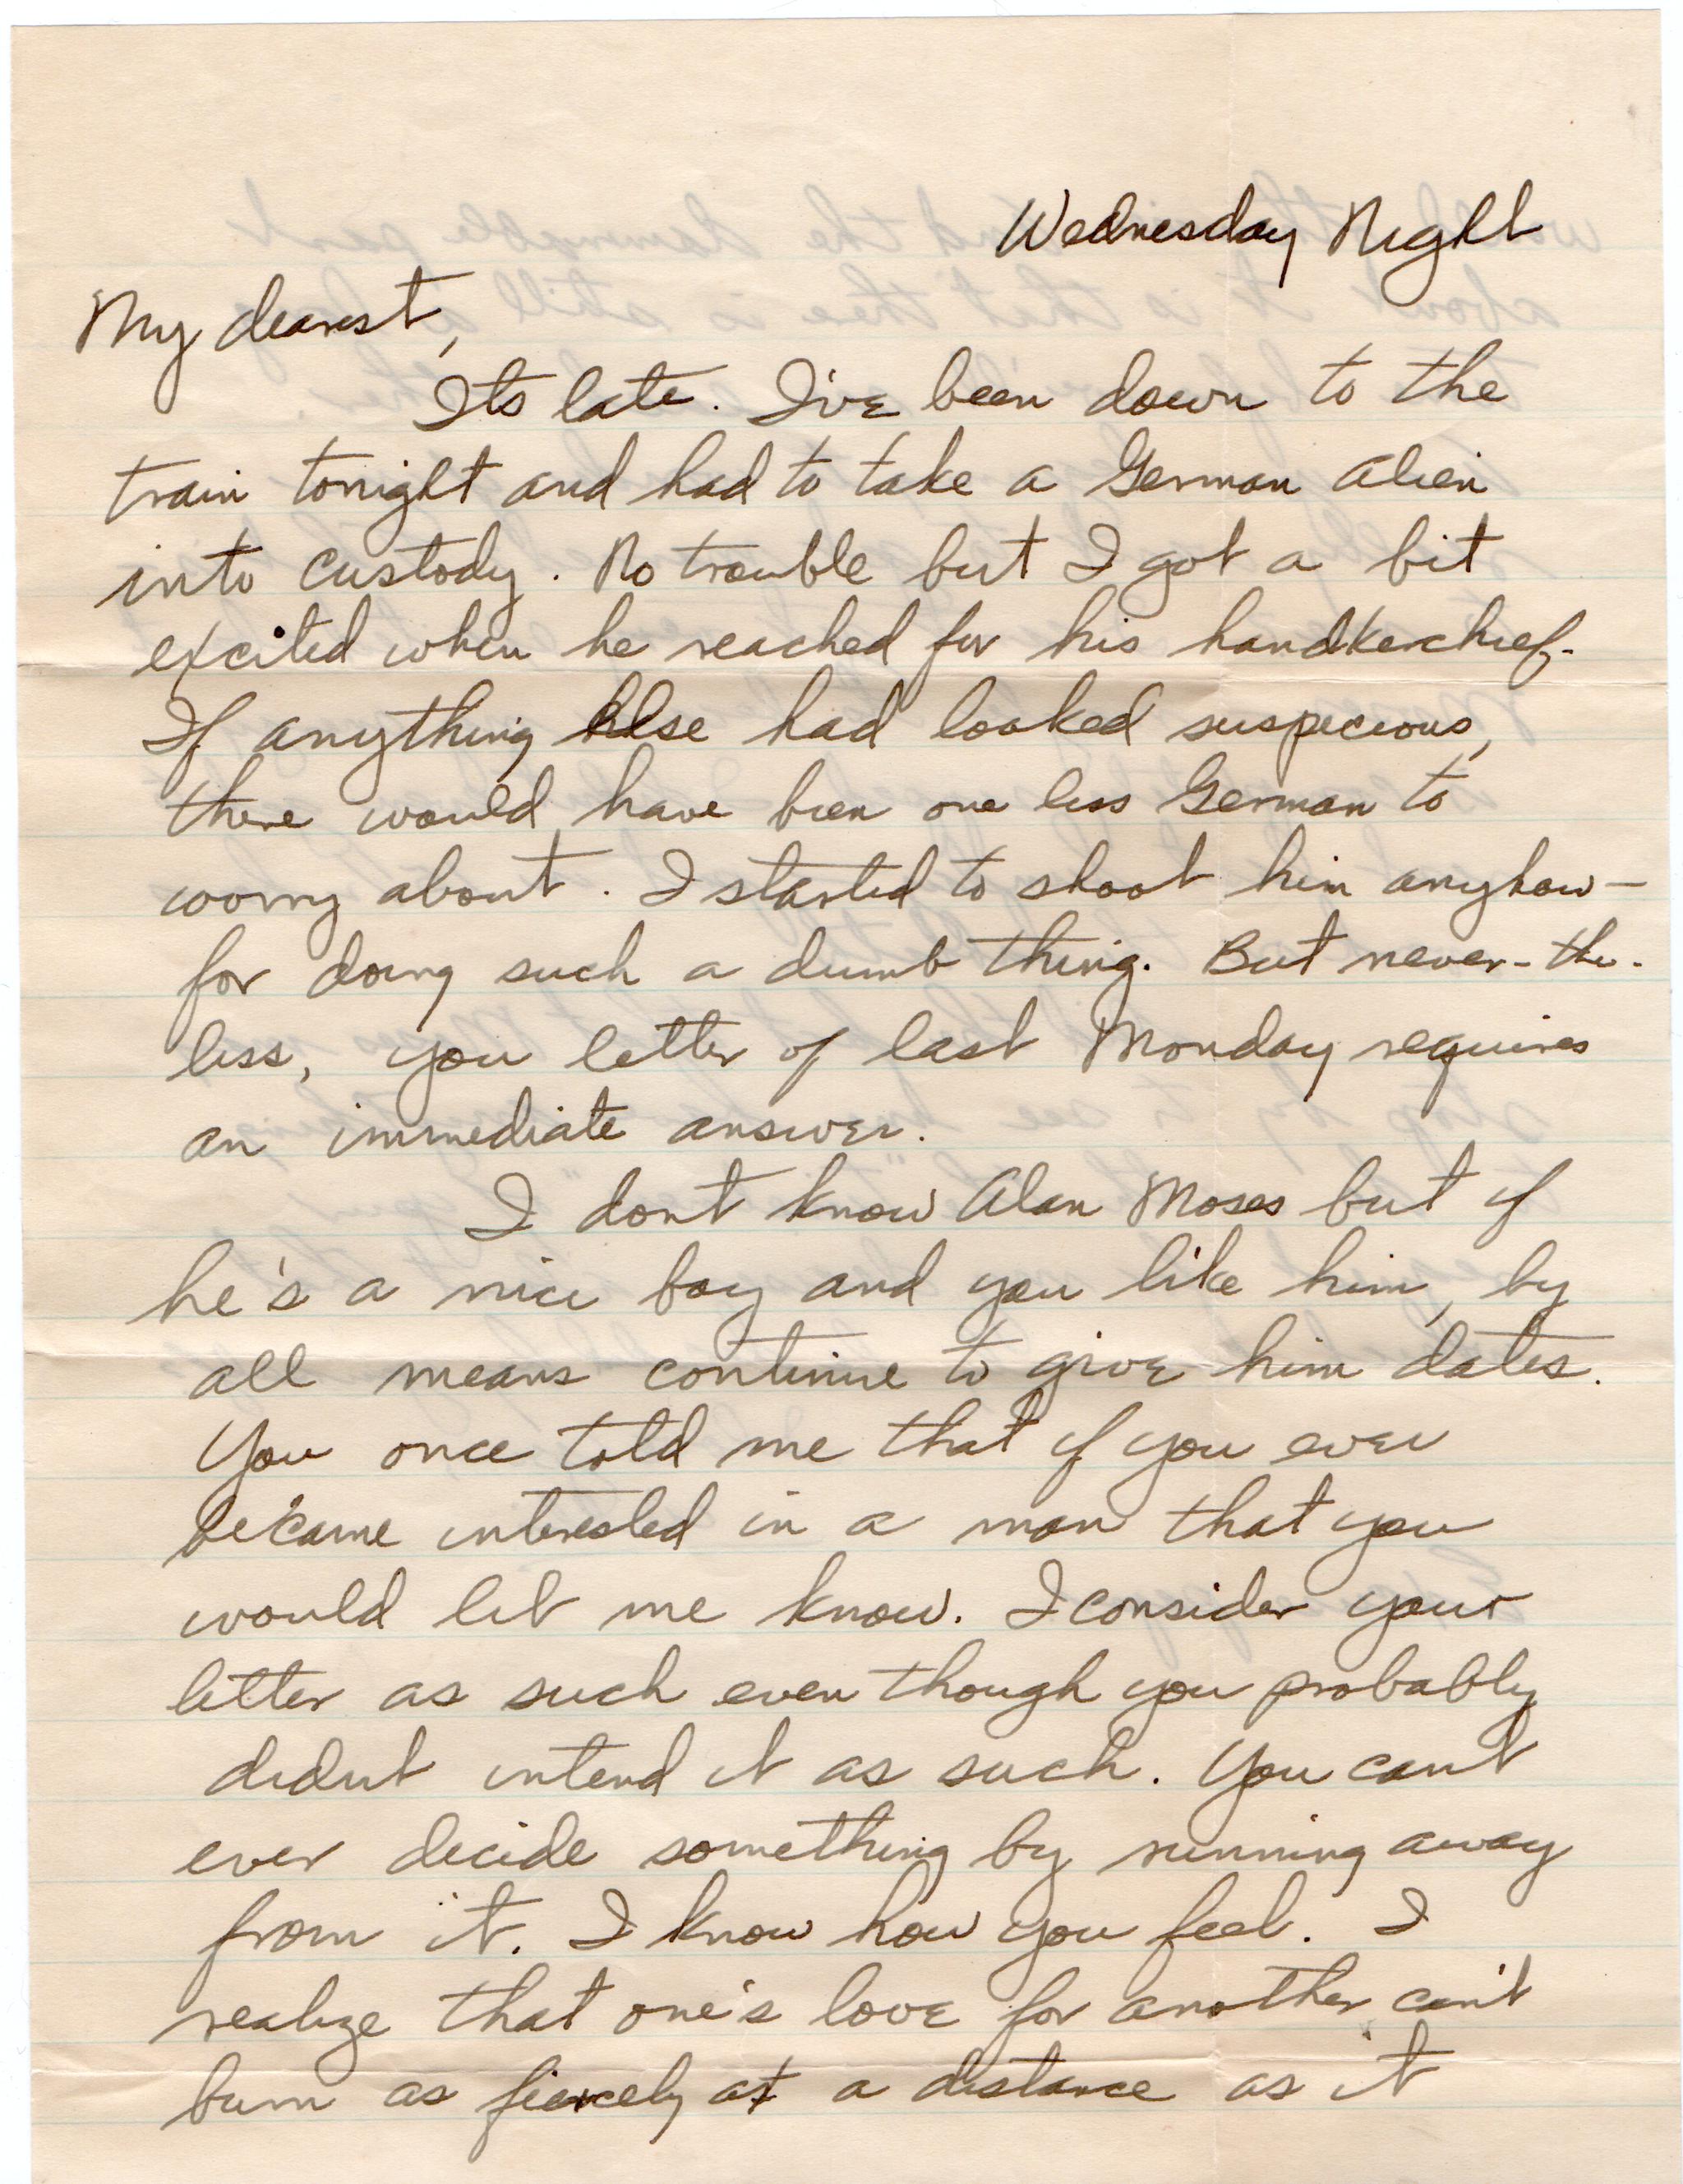 Wednesday Night
My dearest,
Its late. I've been down to the
train tonight and had to take a German alien
into custody. No trouble but I got a bit
excited when he reached for his handkerchief.
If anything else had looked suspecious,
there would have been one less German to
worry about. I started to shoot him anyhow -
for doing such a dumb thing. But never-the-
less, you letter of last Monday requires
an immediate answer.
I dont know Alan Moses but if
he's a nice boy and you like him, by
all means continue to give him dates.
You once told me that if you ever
became interested in a man that you
would let me know. I consider your
letter as such even though you probably
didnt intend it as such. You cant
ever decide something by running away
from it. I know how you feel. I
realize that one's love for another can't
burn as fiercely at a distance as it